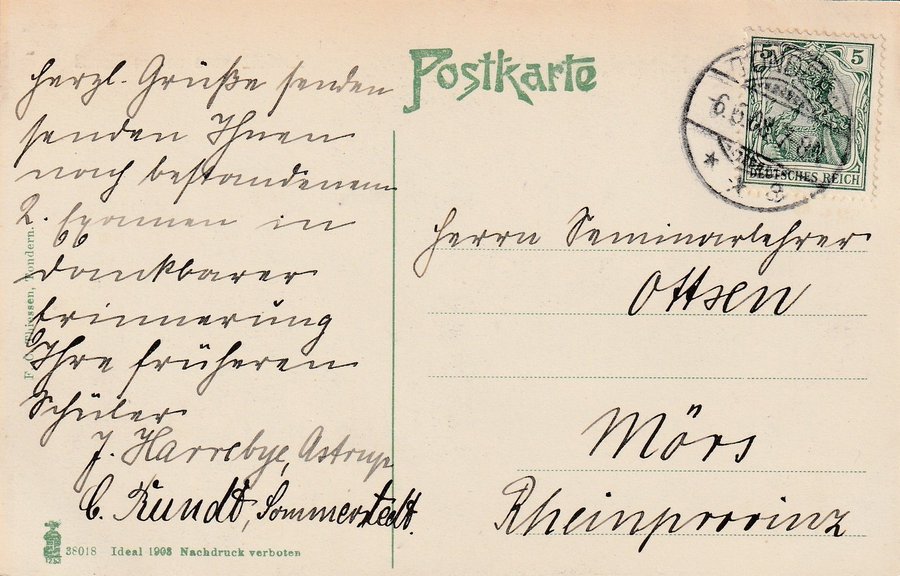 Postkarte
5 5
DEUTSCHES REICH
6.6.08. 7-8N.
herzl. Grüße senden
senden Ihnen
nach bestandenem
2. Examen in
dankbarer
Erinnerung
Ihre früheren
Schüler
J. Harrebye, Astrup
C. Rundt, Sommerstedt.
Herrn Seminarlehrer
Ottsen
Mörs
Rheinprovinz
Thiessen, Tondern.
38018 Ideal 1908 Nachdruck verboten